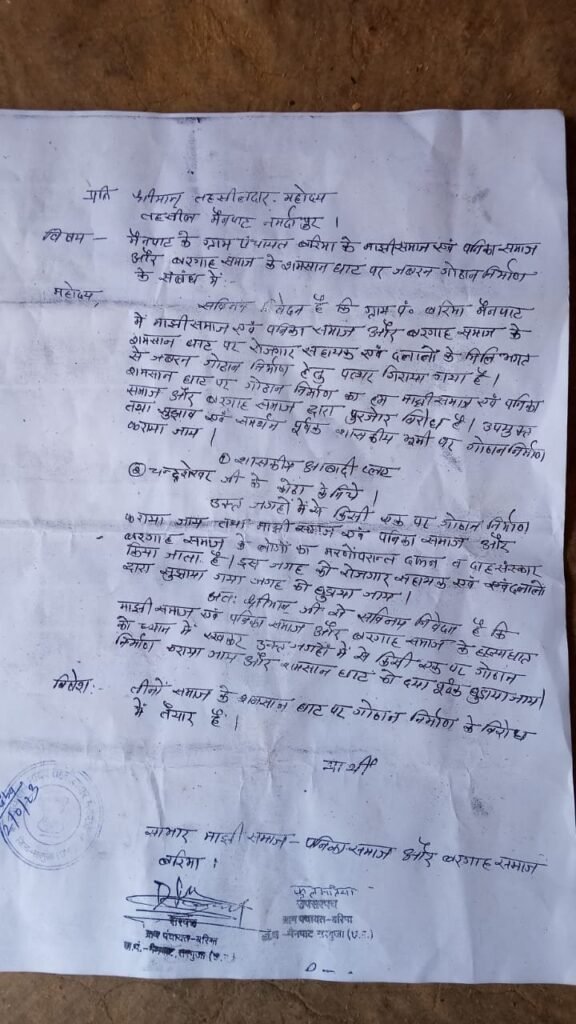 प्रति श्रीमान् तहसीलदार महोदय
तहसील मैनपाट नर्मदापुर ।
विषय — मैनपाट के ग्राम पंचायत बरिमा के माझी समाज एवं पनिका समाज
और बरगाह समाज के शमसान घाट पर जबरन गोठान निर्माण
के संबंध में :-
महोदय,
सविनय निवेदन है कि ग्राम पं० बरिमा मैनपाट
में माझी समाज एवं पनिका समाज और बरगाह समाज के
शमसान घाट पर रोजगार सहायक एवं दलालों के मिलि भगत
से जबरन गोठान निर्माण हेतु पत्थर गिराया गया है ।
शमसान घाट पर गोठान निर्माण का हम माझी समाज एवं पनिका
समाज और बरगाह समाज द्वारा पुरजोर विरोध है । उपयुक्त
तथा सुझाव एवं समर्थन पूर्वक शासकीय भूमी पर गोठान निर्माण
कराया जाय ।
① शासकीय आबादी प्लाट
② चन्द्रशेखर जी के कोठा के निचे ।
उक्त जगहों में से किसी एक पर गोठान निर्माण
कराया जाय तथा माझी समाज एवं पनिका समाज और
बरगाह समाज के लोगों का मरणोपरान्त दफन व दाह संस्कार
किया जाता है । इस जगह को रोजगार सहायक एवं दलालों
द्वारा सुझाया गया जगह को छुड़ाया जाय ।
अतः श्रीमान् जी से सविनय निवेदन है कि
माझी समाज एवं पनिका समाज और बरगाह समाज के
को ध्यान में रखकर उक्त जगहों में से किसी एक पर गोठान
निर्माण कराया जाय और शमसान घाट को दया पूर्वक छुड़ाया जाय।
विशेष :- तीनों समाज के शमसान घाट पर गोठान निर्माण के विरोध
में तैयार है ।
प्रार्थी
माझी समाज - पनिका समाज और बरगाह समाज
बरिमा :
फुलमतिया
सरपंच
उपसरपंच
ग्राम पंचायत-बरिमा
ग्राम पंचायत-बरिमा
ज.पं.-मैनपाट, सरगुजा (छ.ग.)
मैनपाट सरगुजा (छ.ग.)